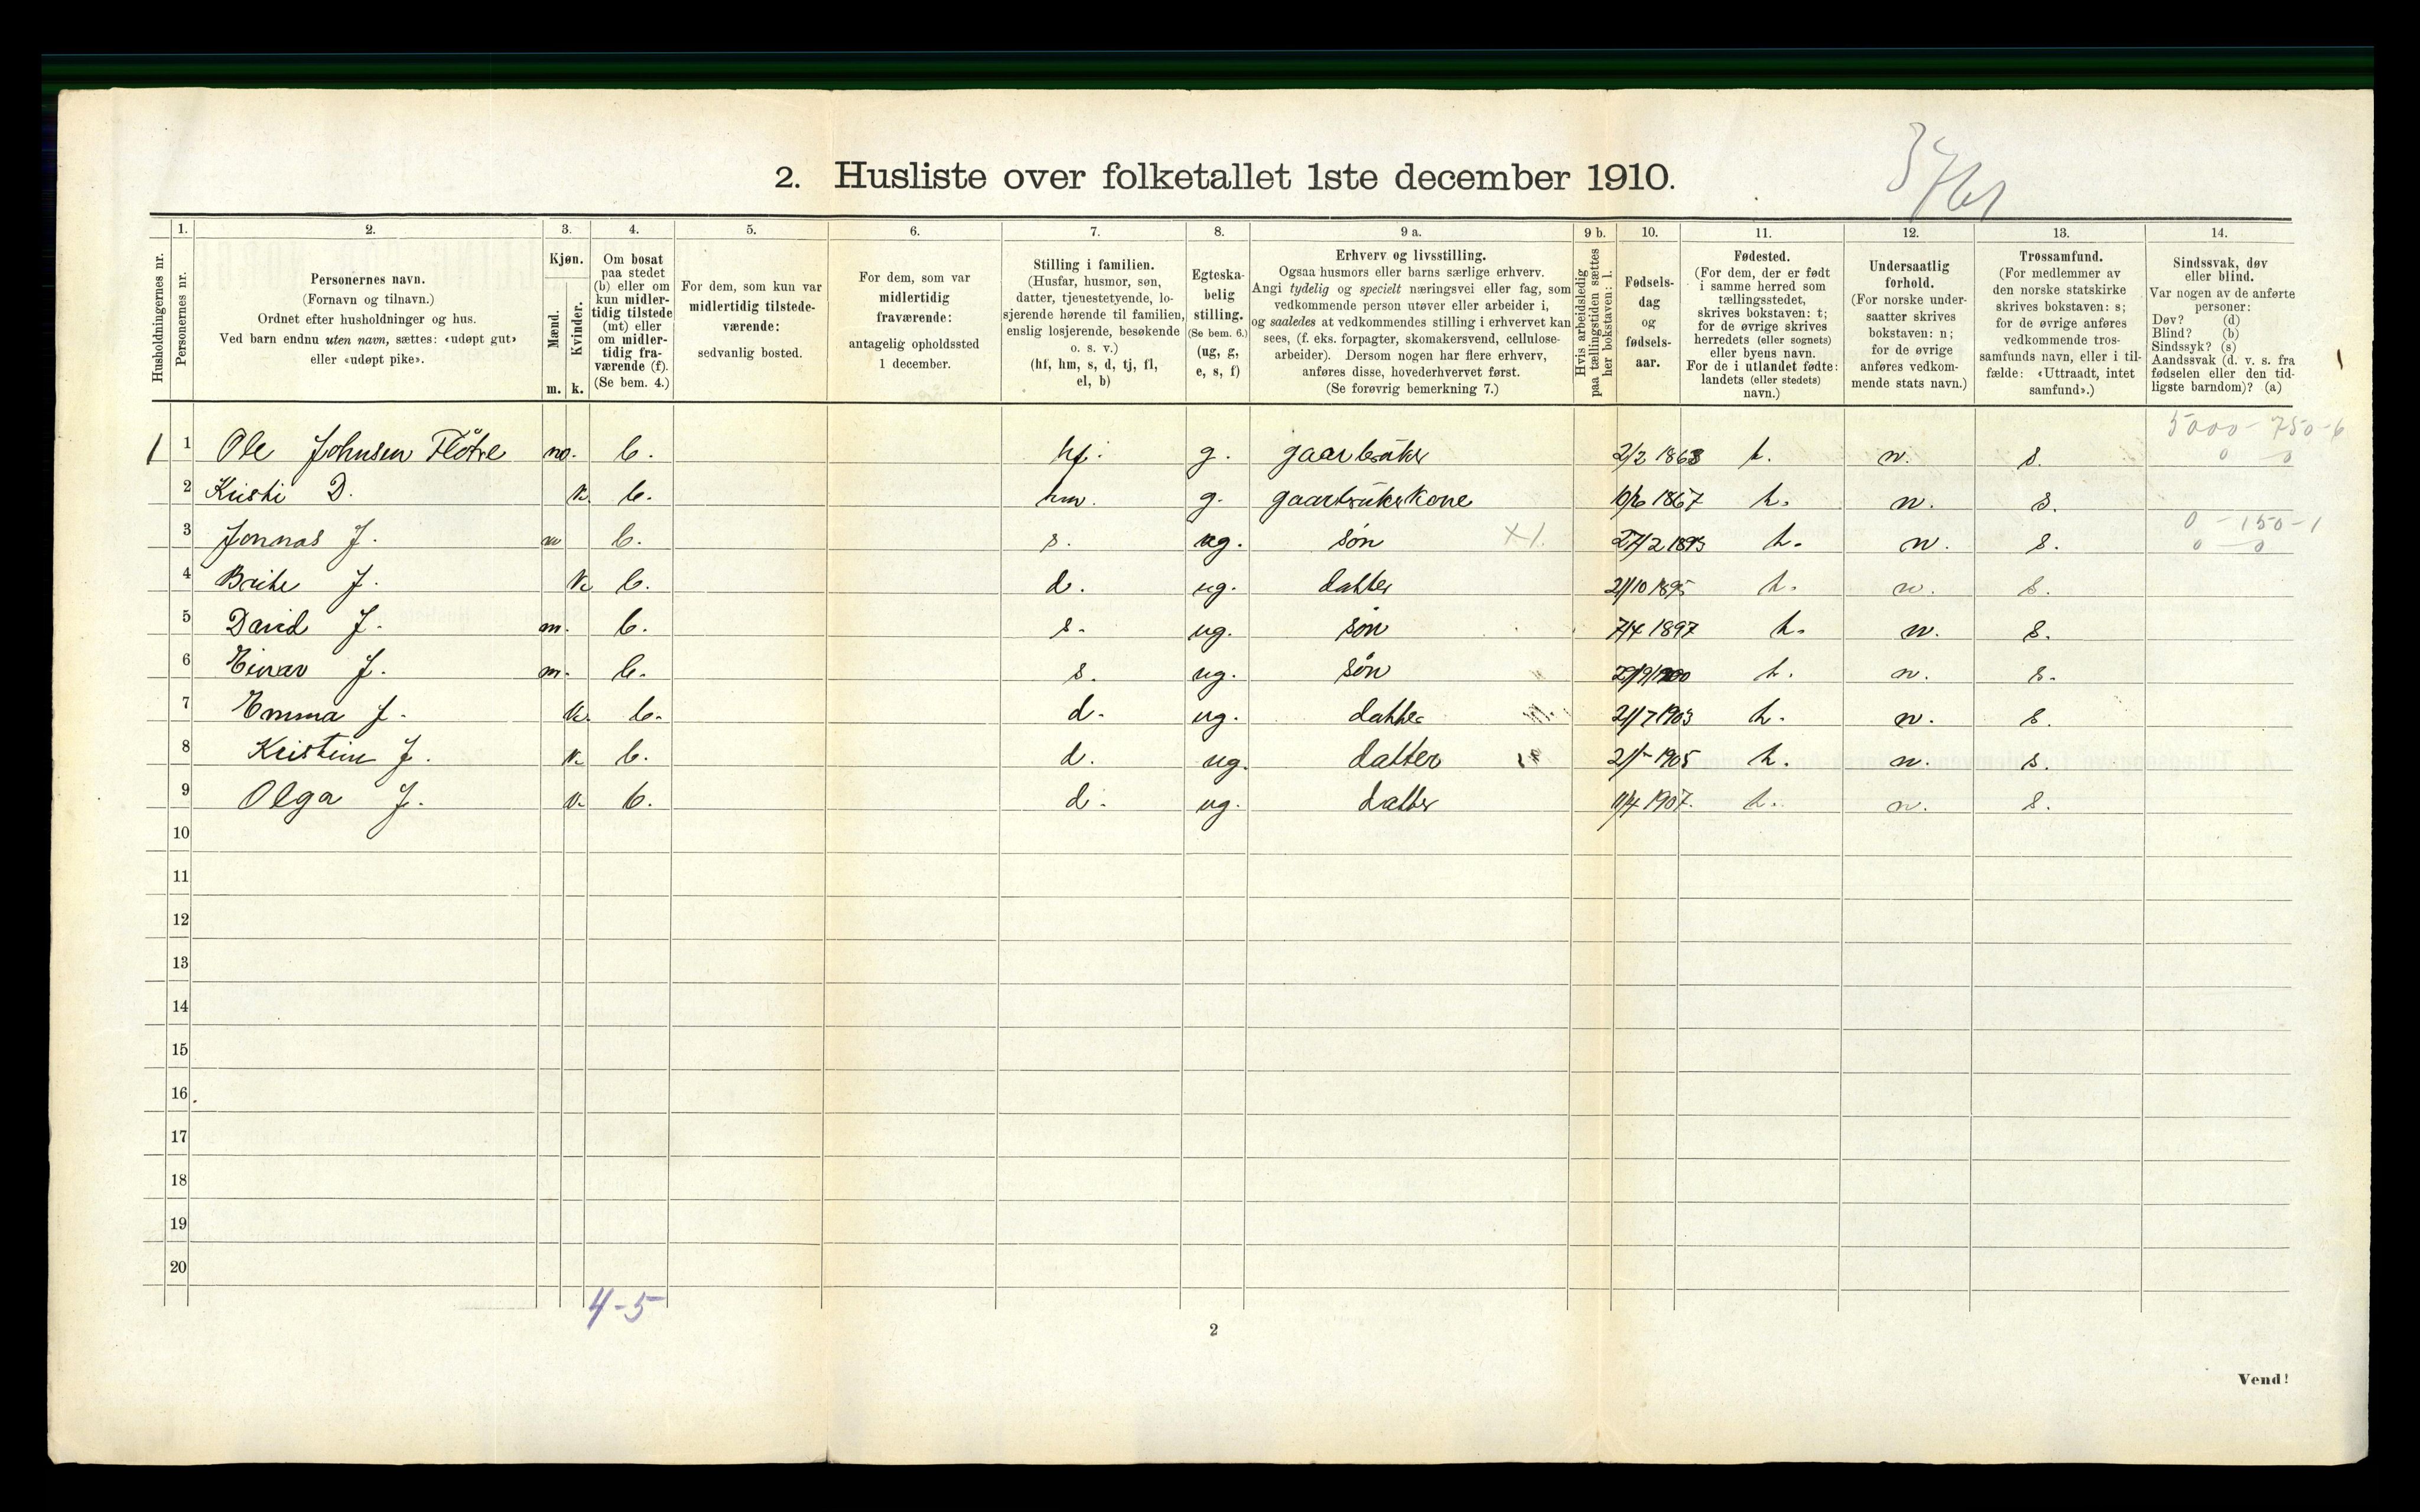 2. Husliste over folketallet 1ste december 1910.
1. 2. 3. 4. 5. 6. 7. 8. 9 a. 9 b. 10. 11. 12. 13. 14.
Husholdningernes nr.
Personernes nr.
Personernes navn.
(Fornavn og tilnavn.)
Ordnet efter husholdninger og hus.
Ved barn endnu uten navn, sættes: «udøpt gut»
eller «udøpt pike».
Kjøn.
Mænd.
Kvinder.
m. k.
Om bosat
paa stedet
(b) eller om
kun midler-
tidig tilstede
(mt) eller
om midler-
tidig fra-
værende (f).
(Se bem. 4.)
For dem, som kun var
midlertidig tilstede-
værende:
sedvanlig bosted.
For dem, som var
midlertidig
fraværende:
antagelig opholdssted
1 december.
Stilling i familien.
(Husfar, husmor, søn,
datter, tjenestetyende, lo-
sjerende hørende til familien,
enslig losjerende, besøkende
o. s. v.)
(hf, hm, s, d, tj, fl,
el, b)
Egteska-
belig
stilling.
(Se bem. 6.)
(ug, g,
e, s, f)
Erhverv og livsstilling.
Ogsaa husmors eller barns særlige erhverv.
Angi tydelig og specielt næringsvei eller fag, som
vedkommende person utøver eller arbeider i,
og saaledes at vedkommendes stilling i erhvervet kan
sees, (f. eks. forpagter, skomakersvend, cellulose-
arbeider). Dersom nogen har flere erhverv,
anføres disse, hovederhvervet først.
(Se forøvrig bemerkning 7.)
Hvis arbeidsledig
paa tællingstiden sættes
her bokstaven: l.
Fødsels-
dag
og
fødsels-
aar.
Fødested.
(For dem, der er født
i samme herred som
tællingsstedet,
skrives bokstaven: t;
for de øvrige skrives
herredets (eller sognets)
eller byens navn.
For de i utlandet fødte:
landets (eller stedets)
navn.)
Undersaatlig
forhold.
(For norske under-
saatter skrives
bokstaven: n;
for de øvrige
anføres vedkom-
mende stats navn.)
Trossamfund.
(For medlemmer av
den norske statskirke
skrives bokstaven: s;
for de øvrige anføres
vedkommende tros-
samfunds navn, eller i til-
fælde: «Uttraadt, intet
samfund».)
Sindssvak, døv
eller blind.
Var nogen av de anførte
personer:
Døv? (d)
Blind? (b)
Sindssyk? (s)
Aandssvak (d. v. s. fra
fødselen eller den tid-
ligste barndom)? (a)
5000 - 750-6
0 0
1 1 Ole Johnsen Flötre m. b. hf. g. gaarbrüker 2/2 1863 t. n. s.
2 Kristi D. k. b. hm. g. gaarbrükerkone 1867 t. n. s.
0 - 150-1
0 0
3 Jonnas J. m b. s. ug. sön X1. 27/2 1893 t. n. s.
4 Brite J. k b. d. ug. datter 21/10 1895 t. n. s.
5 David J. m. b. s. ug. sön 7/4 1897 t. n. s.
6 Einar J. m. b. s. ug. sön t. n. s.
7 Emma J. k. b. d. ug. datter 21/7 1903 t. n. s.
8 Kristine J. k. b. d. ug. datter 1905 t. n. s.
9 Olga J. k. b. d. ug. datter 11/4 1907. t. n. s.
10
11
12
13
14
15
16
17
18
19
20
4-5
2
Vend!